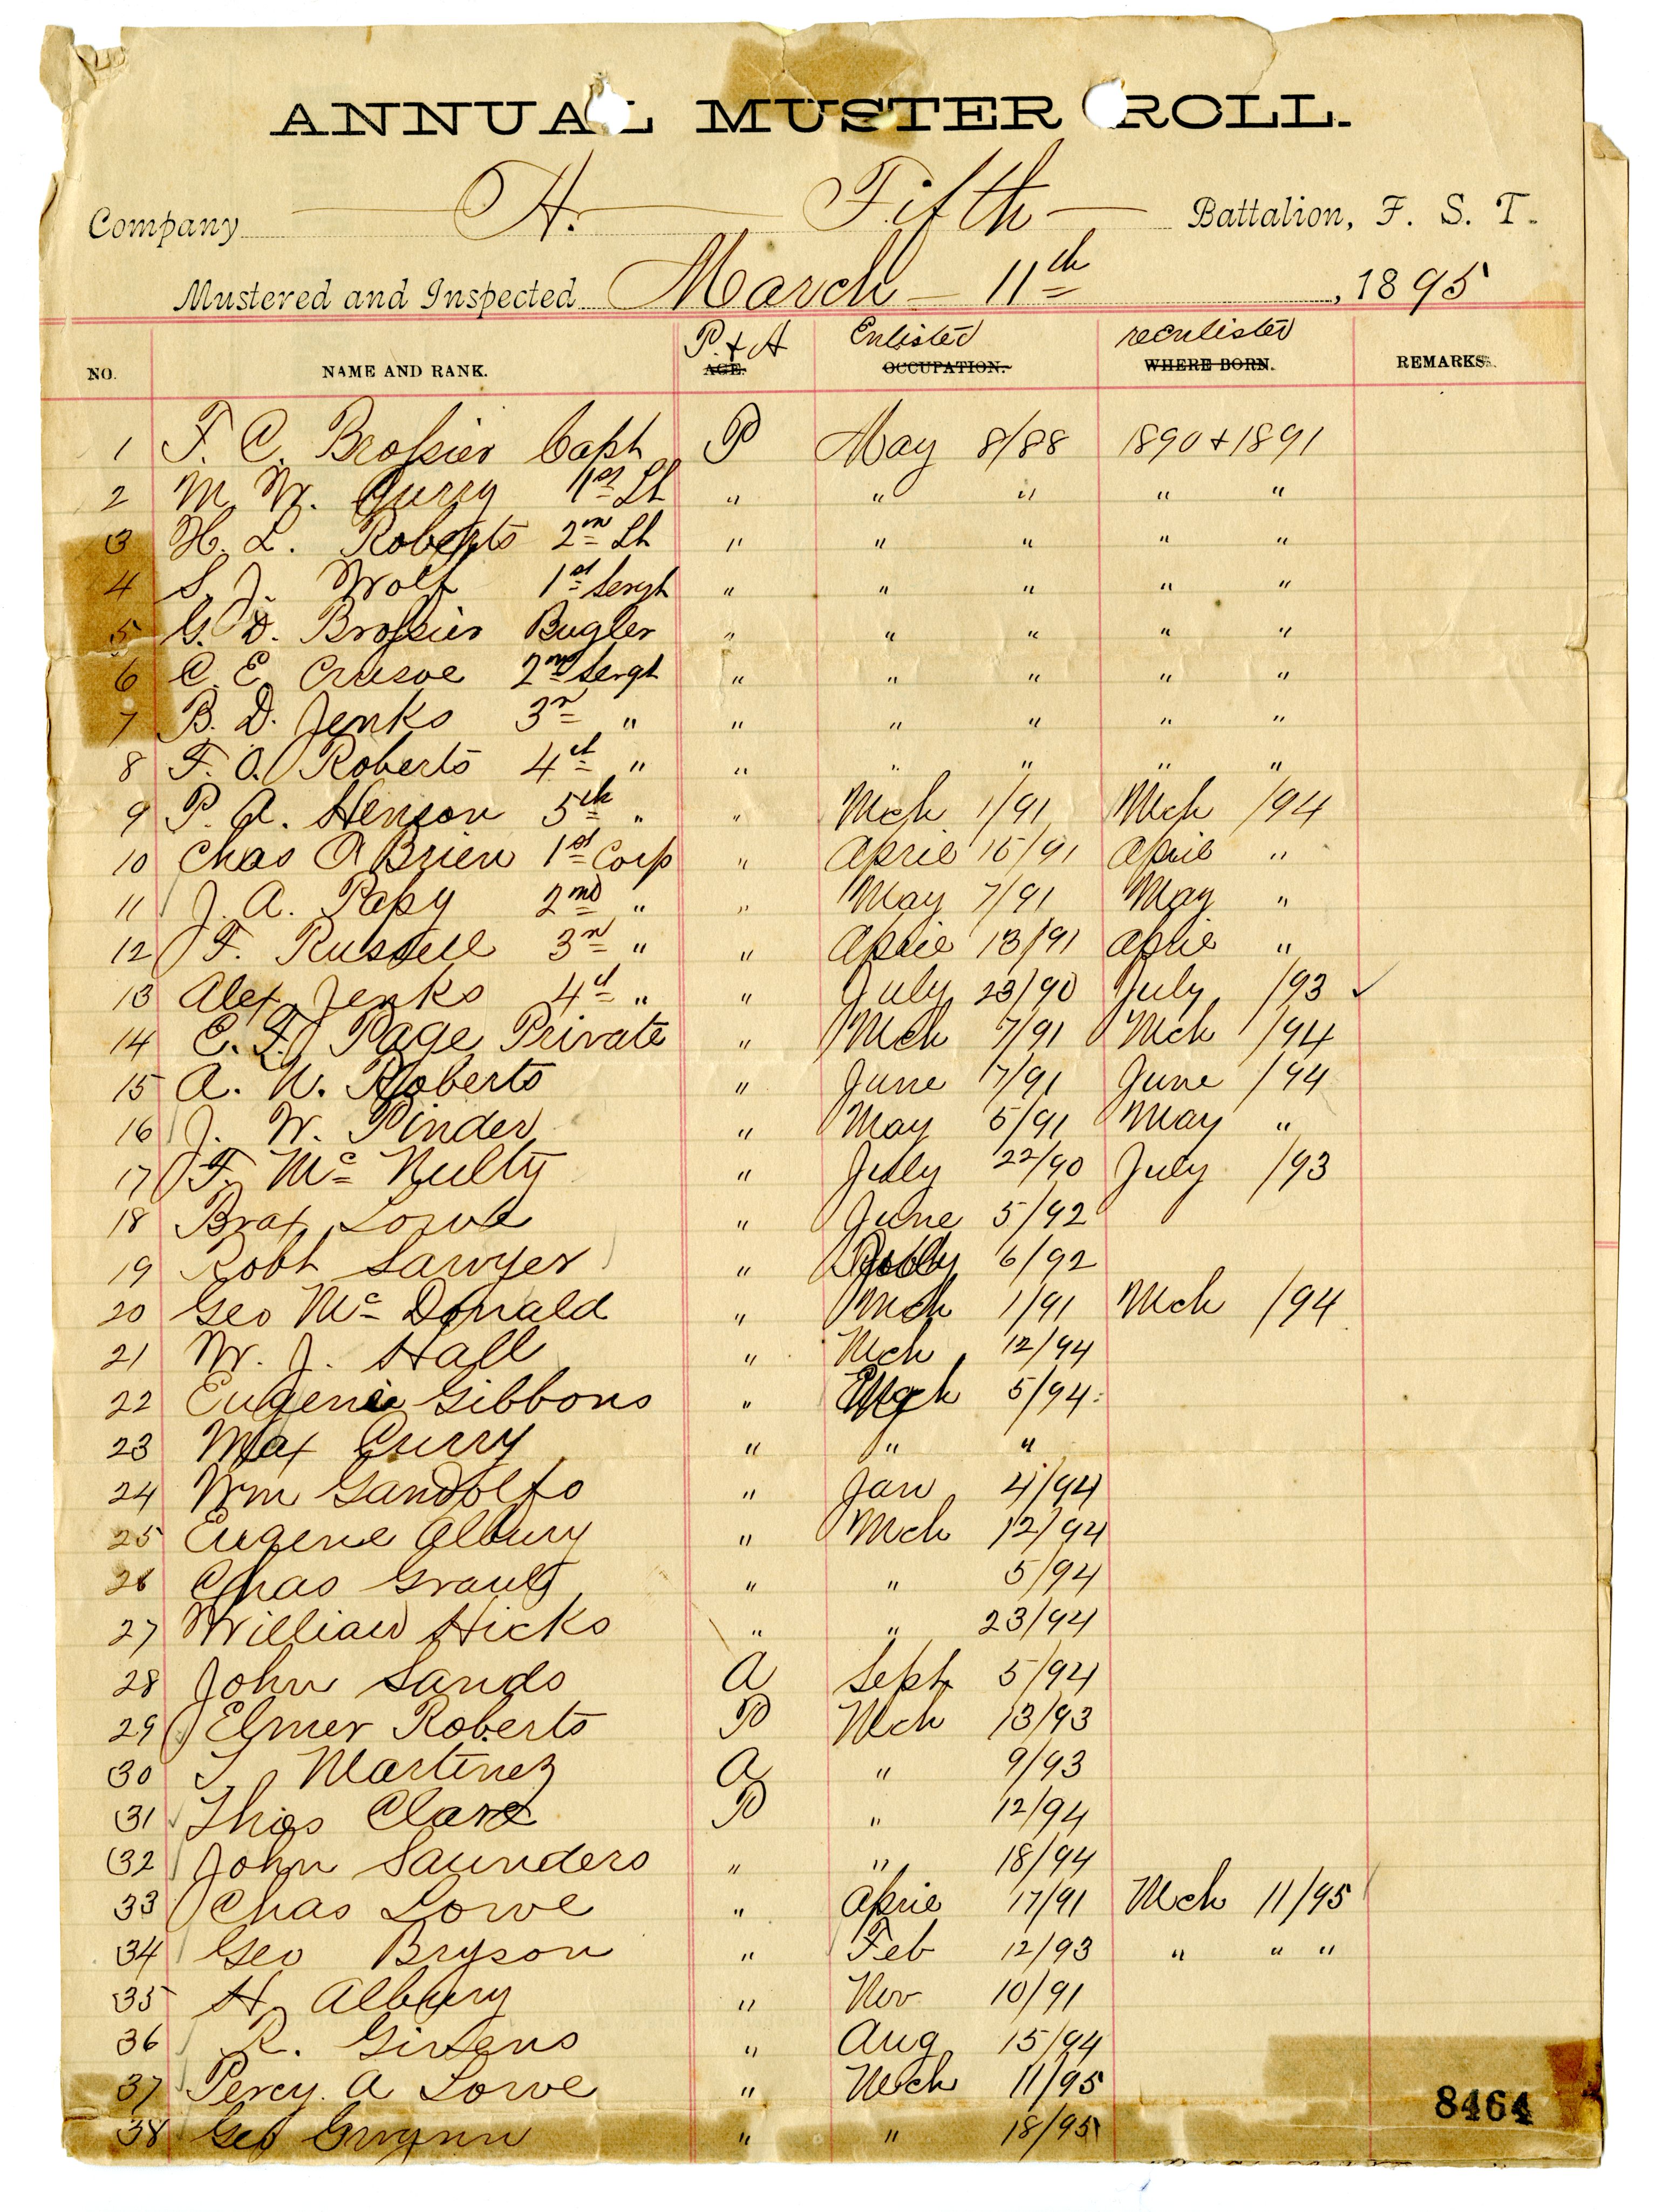 ANNUAL MUSTER ROLL.
Company A. Fifth Battalion, F. S. T.
Mustered and Inspected March 11th, 1895
NO. NAME AND RANK. P. & A AGE. Enlisted OCCUPATION. reenlisted WHERE BORN. REMARKS.
1 F. C. Brossier Capt P May 8/88 1890 & 1891
2 M. W. Curry 1st Lt " " " " "
3 H. L. Roberts 2nd Lt " " " " "
4 S. J. Wolf 1st Sergt " " " " "
5 G. D. Brossier Bugler " " " " "
6 C. E. Crusoe 2nd Sergt " " " " "
7 B. D. Jenks 3rd " " " " " "
8 F. O. Roberts 4th " " " " " "
9 P. A. Henson 5th " " Mch 1/91 Mch /94
10 Chas O Brien 1st Corp " April 15/91 April "
11 J. A. Papy 2nd " " May 7/91 May "
12 F. Russell 3rd " " April 13/91 April "
13 Alex Jenks 4th " " July 23/90 July /93 ✓
14 E. F. Page Private " Mch 7/91 Mch /94
15 A. W. Roberts " June 17/91 June /94
16 J. W. Pinder " May 5/91 May "
17 F. Mc Nulty " July 22/90 July /93
18 Brax Lowe " June 5/92
19 Robt Sawyer " 6/92
20 Geo Mc Donald " Mch 1/91 Mch /94
21 W. J. Hall " Mch 12/94
22 Eugene Gibbons " Mch 5/94
23 Max Curry " " "
24 Wm Gandolfo " Jan 4/94
25 Eugene Albury " Mch 12/94
26 Chas " " 5/94
27 William Hicks " " 23/94
28 John Sands A Sept 5/94
29 Elmer Roberts P Mch 13/93
30 Martinez A " 9/93
31 Thos Clark P " 12/94
32 John Saunders " " 18/94
33 Chas Lowe " April 17/91 Mch 11/95
34 Geo Bryson " Feb 12/93 " " "
35 H. Albury " Nov 10/91
36 R. Givens " Aug 15/94
37 Percy. A Lowe " Mch 11/95
38 Geo Gwynn " " 18/95
8464